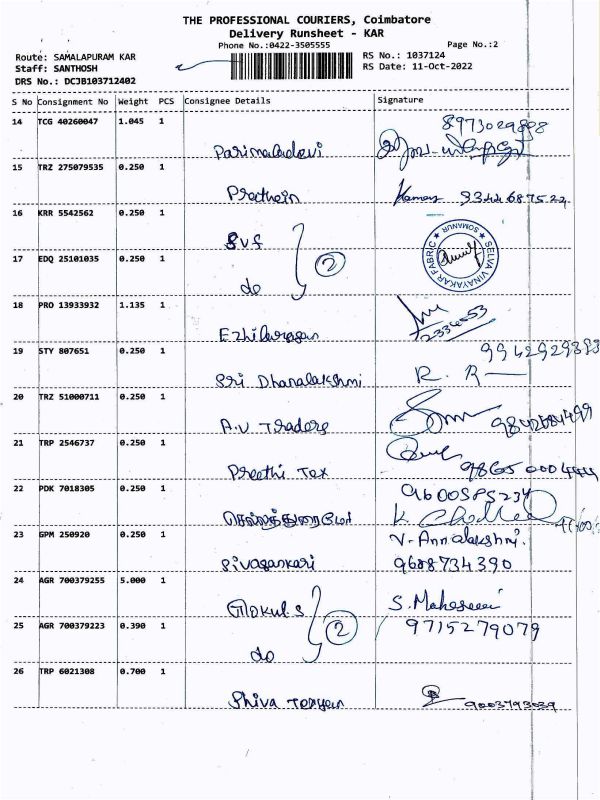 THE PROFESSIONAL COURIERS, Coimbatore
Delivery Runsheet - KAR
Phone No.:0422-3505555
Page No.:2
Route: SAMALAPURAM KAR
RS No.: 1037124
Staff: SANTHOSH
RS Date: 11-Oct-2022
DRS No.: DCJB103712402
S No Consignment No Weight PCS Consignee Details Signature
14 TCG 40260047 1.045 1
Parimaladevi
15 TRZ 275079535 0.250 1
16 KRR 5542562 0.250 1
SVF
17 EDQ 25101035 0.250 1
do
2
SELVA VINAYAKAR FABRIC
SOMANUR
18 PRO 13933932 1.135 1
Ezhilarasan
19 STY 807651 0.250 1
Sri Dhanalakshmi R. R
20 TRZ 51000711 0.250 1
A.V Traders
21 TRP 2546737 0.250 1
Preethi Tex
22 PDK 7018305 0.250 1
23 GPM 250920 0.250 1
V. Annalakshmi.
Sivasankari 9688734390
24 AGR 700379255 5.000 1
Gokul.S
25 AGR 700379223 0.390 1
9715279079
do
2
26 TRP 6021308 0.700 1
Shiva
9003793039